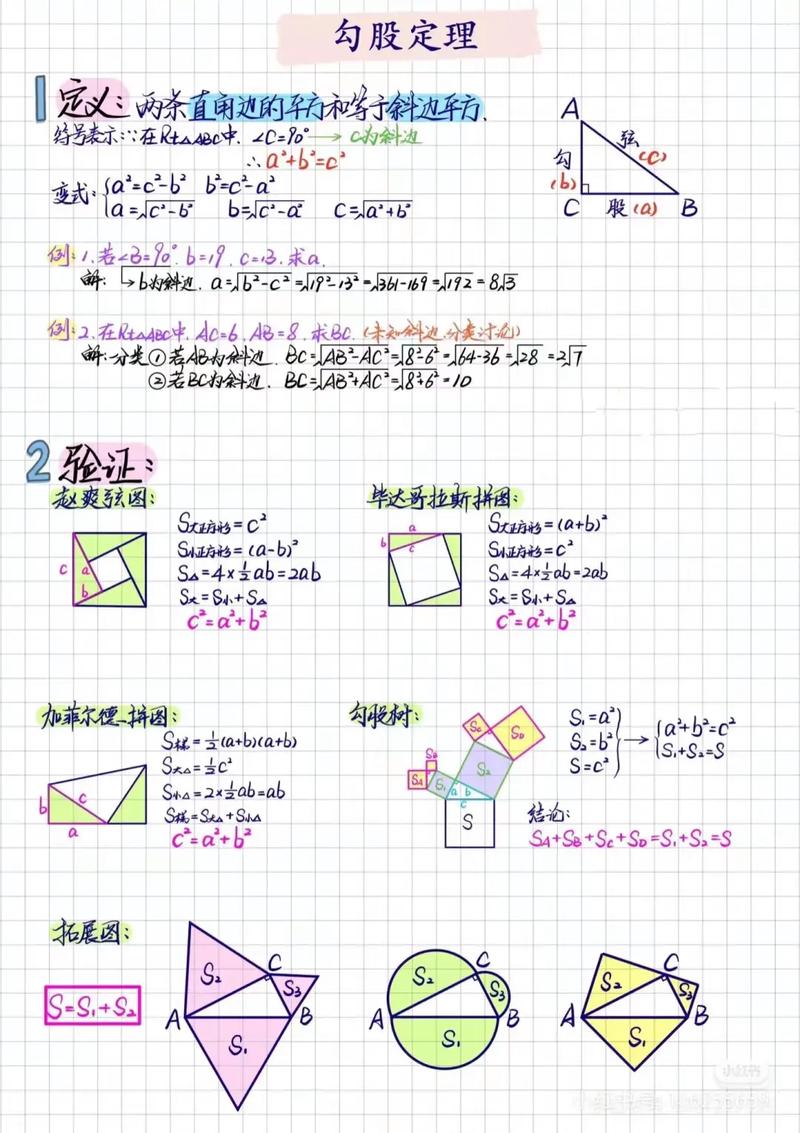 勾股定理
1 定义: 两条直角边的平方和等于斜边平方.
符号表示:∵在Rt△ABC中, ∠C=90° → c为斜边
∴a²+b²=c²
变式: {a²=c²-b² b²=c²-a²
a=√c²-b² b=√c²-a² c=√a²+b²
A
弦
(c)
勾
(b)
C 股(a) B
例: 1.若∠B=90°, b=19, c=13, 求a.
解: ↳b为斜边, a=√b²-c²=√19²-13²=√361-169=√192=8√3
例: 2.在Rt△ABC中, AC=6, AB=8, 求BC. (未知斜边,分类讨论)
解:分类①若AB为斜边, BC=√AB²-AC²=√8²-6²=√64-36=√28=2√7
②若BC为斜边, BC=√AB²+AC²=√8²+6²=10
2 验证:
赵爽弦图:
c a b
S大正方形=c²
S小正方形=(a-b)²
S△=4×½ab=2ab
S大=S小+S△
c²=a²+b²
毕达哥拉斯拼图:
a
b c
S大正方形=(a+b)²
S小正方形=c²
S△=4×½ab=2ab
S大=S小+S△
c²=a²+b²
加菲尔德_拼图:
b c
a
S梯=½(a+b)(a+b)
S大△=½c²
S小△=2×½ab=ab
S梯=S大△+S小△
c²=a²+b²
勾股树:
SC SD
SB
SA S1 S2
a b
c
S
S1=a²
S2=b²
S=c²
→ {a²+b²=c²
S1+S2=S
结论:
SA+SB+SC+SD=S1+S2=S
拓展图:
S=S1+S2
S2 C S3
A B
S1
S2 C S3
A B
S1
S2 C S3
A B
S1
小红书